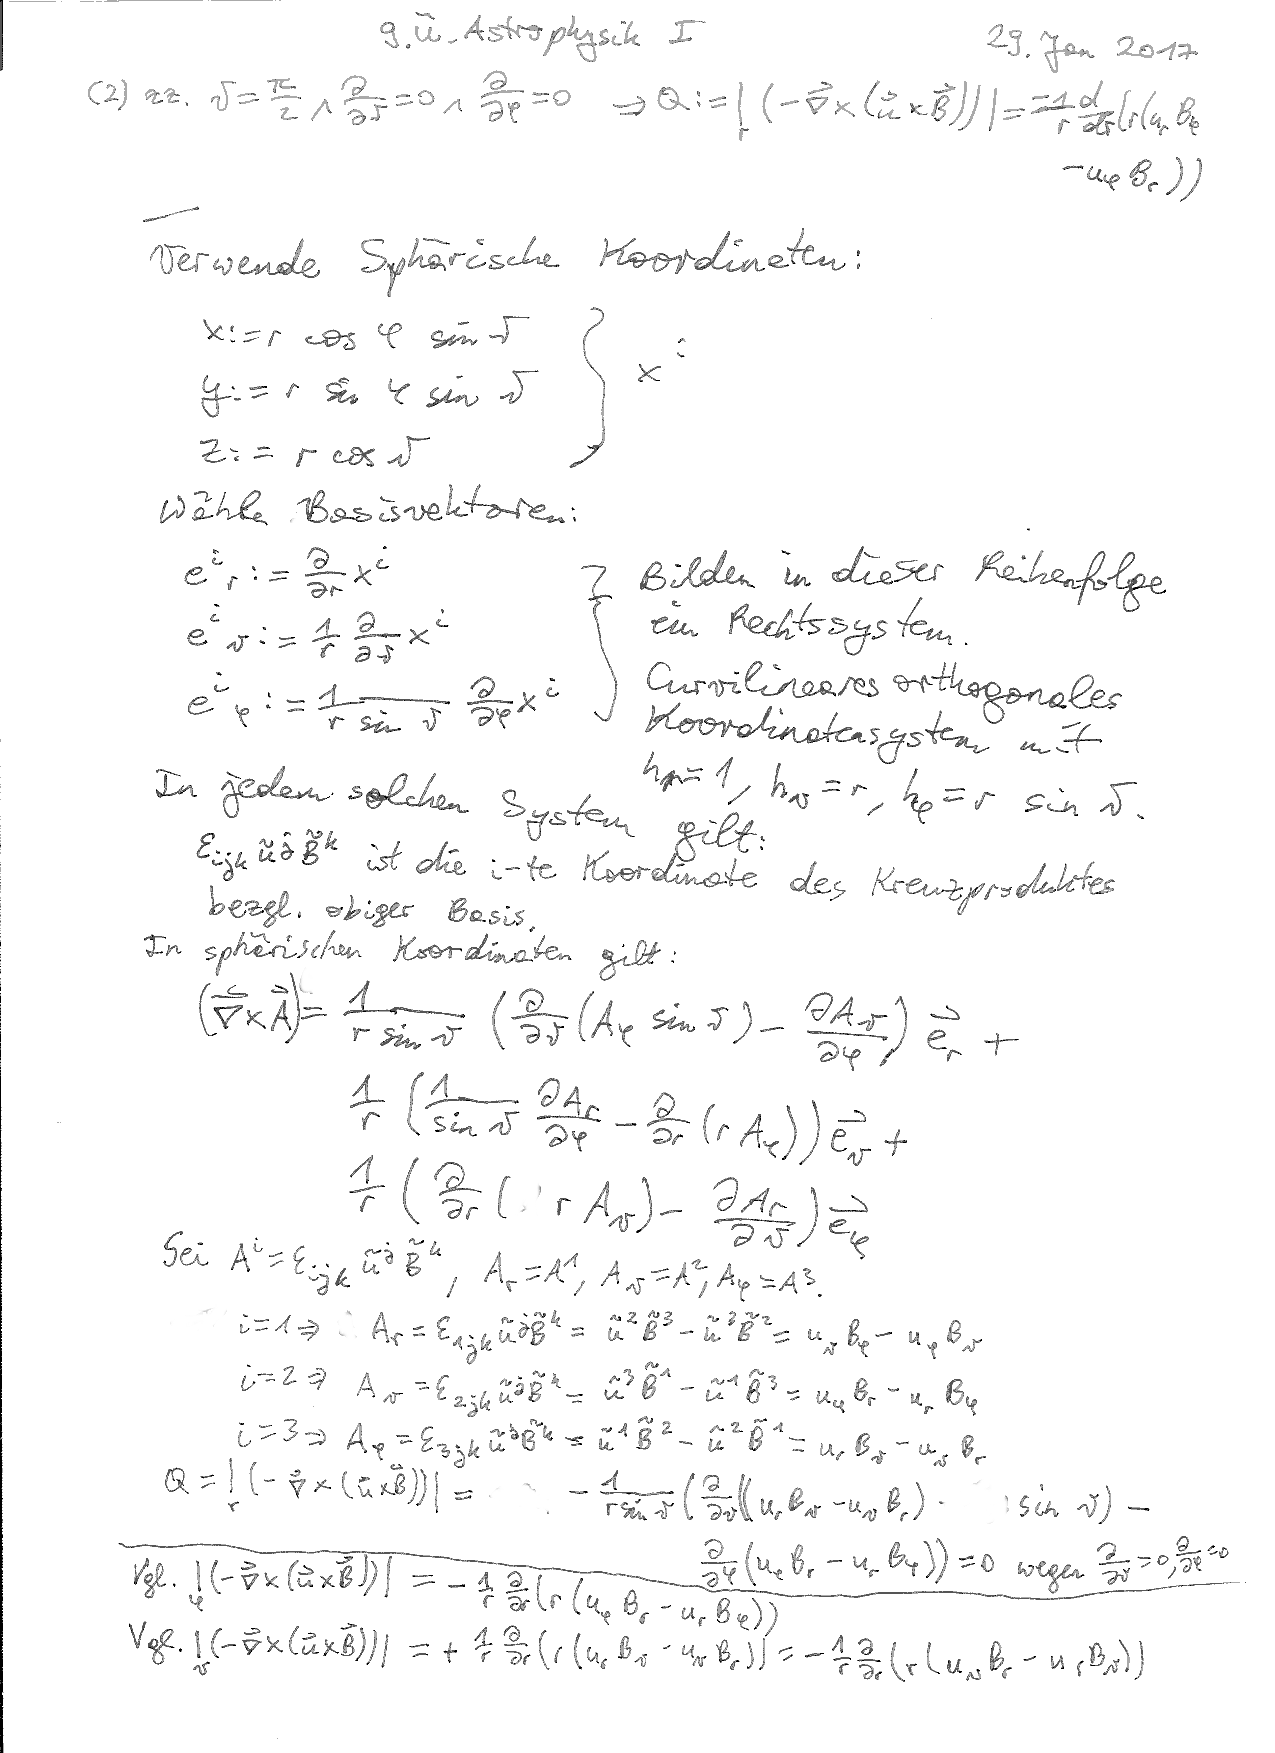 9. Ü. Astrophysik I
29. Jan 2017
(2) zz. ϑ = π/2 ∧ ∂/∂ϑ = 0 ∧ ∂/∂φ = 0 ⇒ Q := |_r (-∇⃗×(u⃗×B⃗))| = -1/r d/dr (r(u_r B_φ
- u_φ B_r))
Verwende Sphärische Koordinaten:
x := r cos φ sin ϑ
y := r sin φ sin ϑ } x^i
z := r cos ϑ
Wähle Basisvektoren:
e^i_r := ∂/∂r x^i
e^i_ϑ := 1/r ∂/∂ϑ x^i
e^i_φ := 1/(r sin ϑ) ∂/∂φ x^i
Bilden in dieser Reihenfolge
ein Rechtssystem.
Curvilineares orthogonales
Koordinatensystem mit
h_r = 1, h_ϑ = r, h_φ = r sin ϑ.
In jedem solchen System gilt:
ε_ijk ũ^j B̃^k ist die i-te Koordinate des Kreuzproduktes
bezgl. obiger Basis.
In sphärischen Koordinaten gilt:
(∇⃗×A⃗) = 1/(r sin ϑ) (∂/∂ϑ (A_φ sin ϑ) - ∂A_ϑ/∂φ) e⃗_r +
1/r (1/sin ϑ ∂A_r/∂φ - ∂/∂r (r A_φ)) e⃗_ϑ +
1/r (∂/∂r (r A_ϑ) - ∂A_r/∂ϑ) e⃗_φ
Sei A^i = ε_ijk ũ^j B̃^k, A_r = A^1, A_ϑ = A^2, A_φ = A^3.
i=1 ⇒ A_r = ε_1jk ũ^j B̃^k = ũ^2 B̃^3 - ũ^3 B̃^2 = u_ϑ B_φ - u_φ B_ϑ
i=2 ⇒ A_ϑ = ε_2jk ũ^j B̃^k = ũ^3 B̃^1 - ũ^1 B̃^3 = u_φ B_r - u_r B_φ
i=3 ⇒ A_φ = ε_3jk ũ^j B̃^k = ũ^1 B̃^2 - ũ^2 B̃^1 = u_r B_ϑ - u_ϑ B_r
Q = |_r (-∇⃗×(u⃗×B⃗))| = -1/(r sin ϑ) (∂/∂ϑ ((u_r B_ϑ - u_ϑ B_r) · sin ϑ) -
∂/∂φ (u_φ B_r - u_r B_φ)) = 0 wegen ∂/∂ϑ = 0, ∂/∂φ = 0
Vgl. |_φ (-∇⃗×(u⃗×B⃗))| = -1/r ∂/∂r (r (u_φ B_r - u_r B_φ))
Vgl. |_ϑ (-∇⃗×(u⃗×B⃗))| = + 1/r ∂/∂r (r (u_r B_ϑ - u_ϑ B_r)) = -1/r ∂/∂r (r (u_ϑ B_r - u_r B_ϑ))